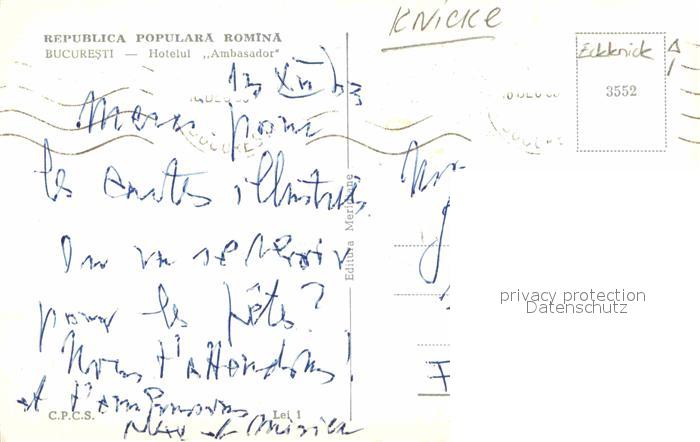 KNICKE
REPUBLICA POPULARĂ ROMÎNĂ
BUCUREŞTI — Hotelul „Ambasador"
Eckknick
3552
13 XII
Merci pour
les cartes illustrés
On va se revoir
pour les fêtes?
Nous t'attendons!
et t'embrassons
et
Editura Meridiane
C.P.C.S.
Lei 1
privacy protection
Datenschutz